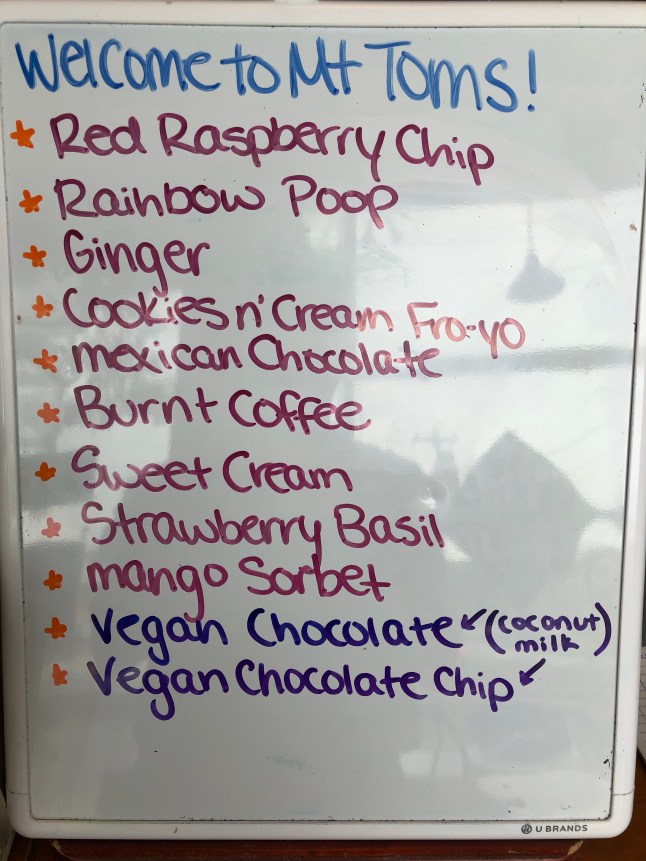 Welcome to Mt Toms!
Red Raspberry Chip
Rainbow Poop
Ginger
Cookies n' Cream Fro-yo
mexican Chocolate
Burnt Coffee
Sweet Cream
Strawberry Basil
mango Sorbet
Vegan Chocolate (coconut milk)
Vegan Chocolate Chip
U BRANDS